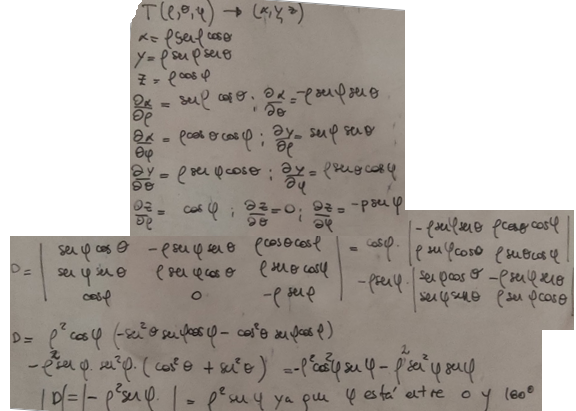 T(ρ,θ,φ) → (x,y,z)
x = ρ sen φ cos θ
y = ρ sen φ sen θ
z = ρ cos φ
∂x/∂ρ = sen φ cos θ ; ∂x/∂θ = -ρ sen φ sen θ
∂x/∂φ = ρ cos θ cos φ ; ∂y/∂ρ = sen φ sen θ
∂y/∂θ = ρ sen φ cos θ ; ∂y/∂φ = ρ sen θ cos φ
∂z/∂ρ = cos φ ; ∂z/∂θ = 0 ; ∂z/∂φ = -ρ sen φ
D = | sen φ cos θ   -ρ sen φ sen θ   ρ cos θ cos φ | = cos φ · | -ρ sen φ sen θ   ρ cos θ cos φ |
| sen φ sen θ   ρ sen φ cos θ   ρ sen θ cos φ |   | ρ sen φ cos θ   ρ sen θ cos φ |
| cos φ   0   -ρ sen φ |   -ρ sen φ · | sen φ cos θ   -ρ sen φ sen θ |
| sen φ sen θ   ρ sen φ cos θ |
D = ρ² cos φ (-sen² θ sen φ cos φ - cos² θ sen φ cos φ)
-ρ² sen φ · sen² φ · (cos² θ + sen² θ) = -ρ² cos² φ sen φ - ρ² sen² φ sen φ
|D| = |-ρ² sen φ · | = ρ² sen φ ya que φ está entre 0 y 180°